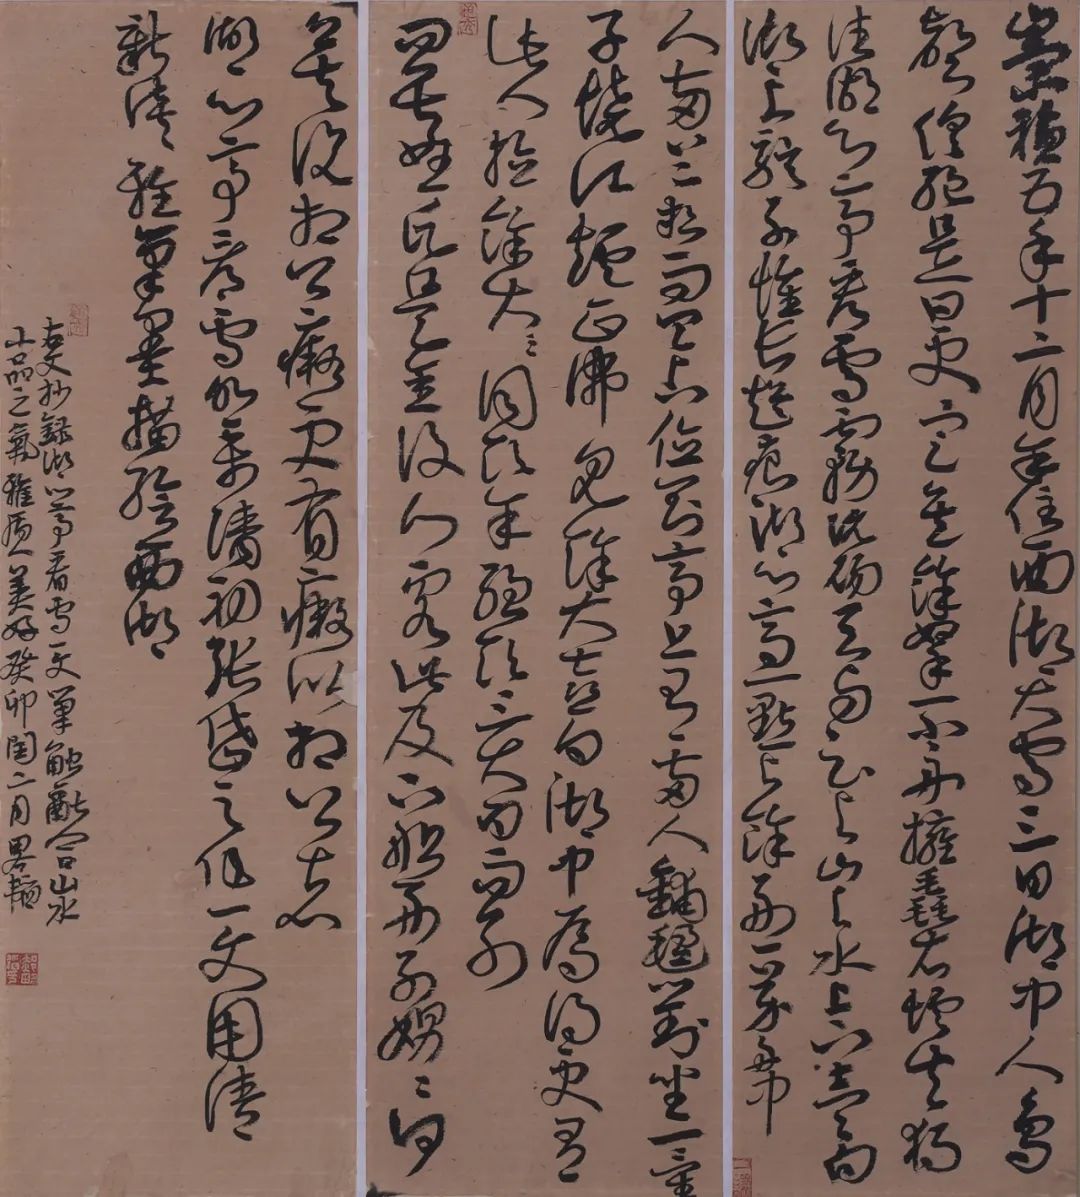 崇禎五年十二月余住西湖大雪三日湖中人鳥
聲俱絕是日更定矣余拏一小舟擁毳衣爐火獨
往湖心亭看雪霧凇沆碭天與雲與山與水上下一白
湖上影子惟長堤一痕湖心亭一點與余舟一芥舟中
人兩三粒而已到亭上有兩人鋪氈對坐一童
子燒酒爐正沸見余大喜曰湖中焉得更有
此人拉余同飲余強飲三大白而別
問其姓氏是金陵人客此及下船舟子喃喃曰
莫說相公癡更有癡似相公者
湖心亭看雪明末清初張岱之作一文用清
新淡雅筆墨描繪西湖
古文抄錄湖心亭看雪一文筆觸含山水
小品之氣雅質美好癸卯閏二月